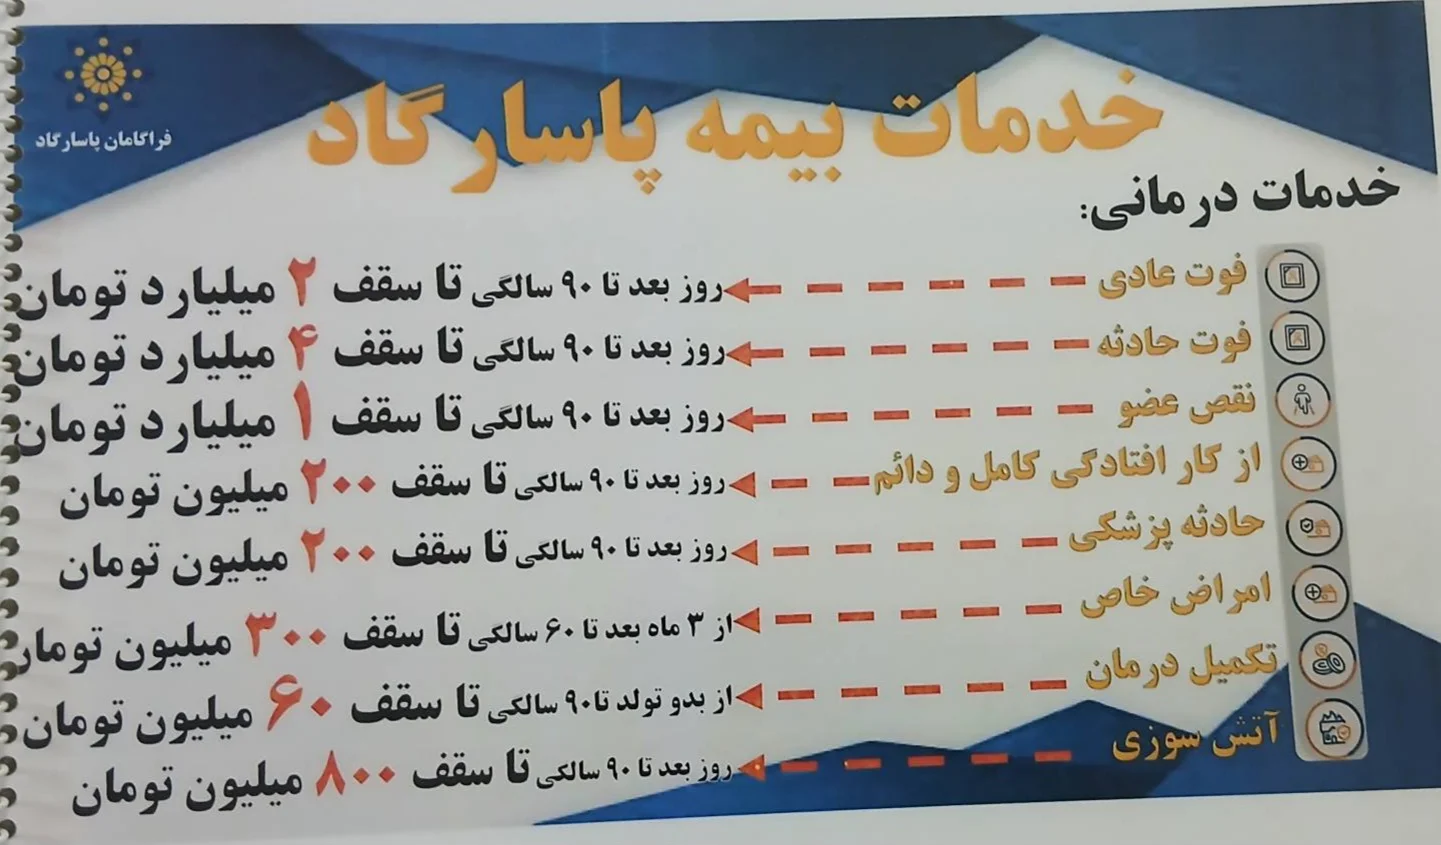 فراگامان پاسارگاد
خدمات بیمه پاسارگاد
خدمات درمانی:
فوت عادی روز بعد تا ۹۰ سالگی تا سقف ۲ میلیارد تومان
فوت حادثه روز بعد تا ۹۰ سالگی تا سقف ۴ میلیارد تومان
نقص عضو روز بعد تا ۹۰ سالگی تا سقف ۱ میلیارد تومان
از کار افتادگی کامل و دائم روز بعد تا ۹۰ سالگی تا سقف ۲۰۰ میلیون تومان
حادثه پزشکی روز بعد تا ۹۰ سالگی تا سقف ۲۰۰ میلیون تومان
امراض خاص از ۳ ماه بعد تا ۶۰ سالگی تا سقف ۳۰۰ میلیون تومان
تکمیل درمان از بدو تولد تا۹۰ سالگی تا سقف ۶۰ میلیون تومان
آتش سوزی روز بعد تا ۹۰ سالگی تا سقف ۸۰۰ میلیون تومان